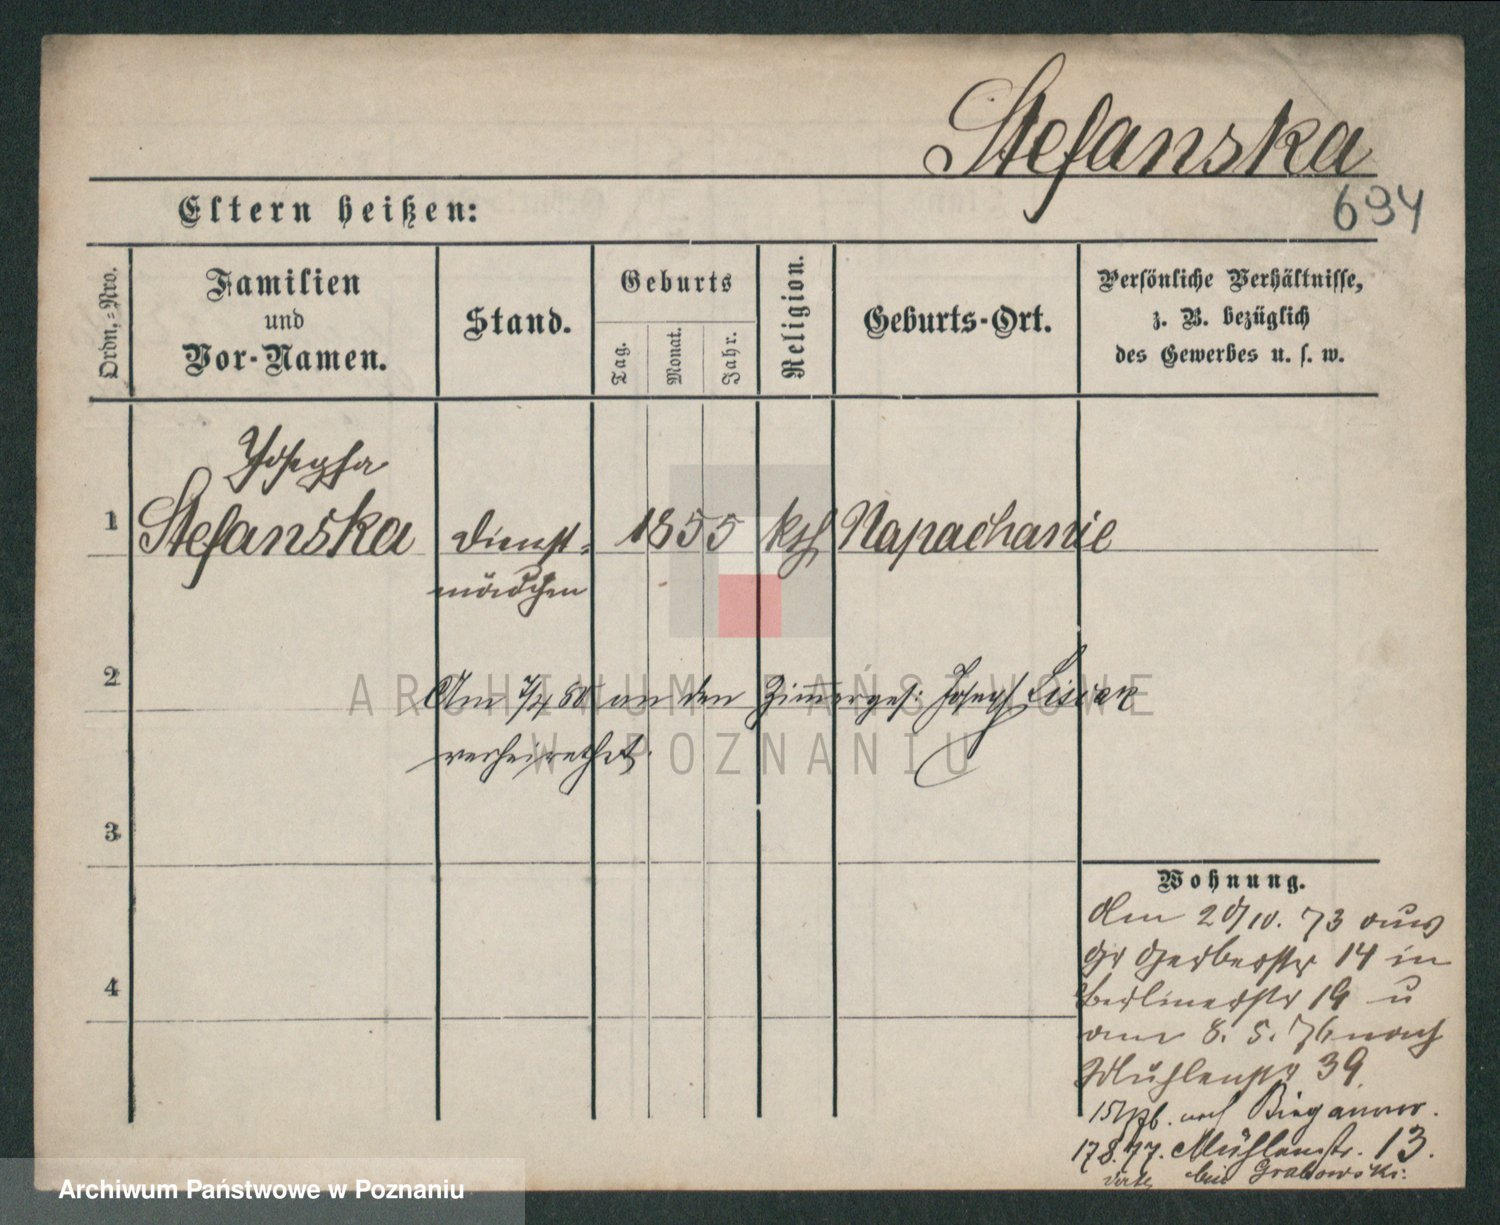 Stefanska
694
Eltern heißen:
Ordn.-Nro.
Familien
und
Vor-Namen.
Stand.
Geburts
Tag.
Monat.
Jahr.
Religion.
Geburts-Ort.
Persönliche Verhältnisse,
z. B. bezüglich
des Gewerbes u. s. w.
Josepha
1 Stefanska Dienst- 1855 kth Napachanie
mädchen
2 Am 7/4 80 an den Zimmerges: Joseph Lisiak
verheirathet.
3
4
Wohnung.
Am 20/10. 73 aus
Gr Gerberstr 14 in
Berlinerstr 19 u
am 8. 5. 76 nach
Mühlenstr 39
nach
17.8.77. Mühlenstr. 13.
bei Grabowski.
ARCHIWUM PAŃSTWOWE
W POZNANIU
Archiwum Państwowe w Poznaniu